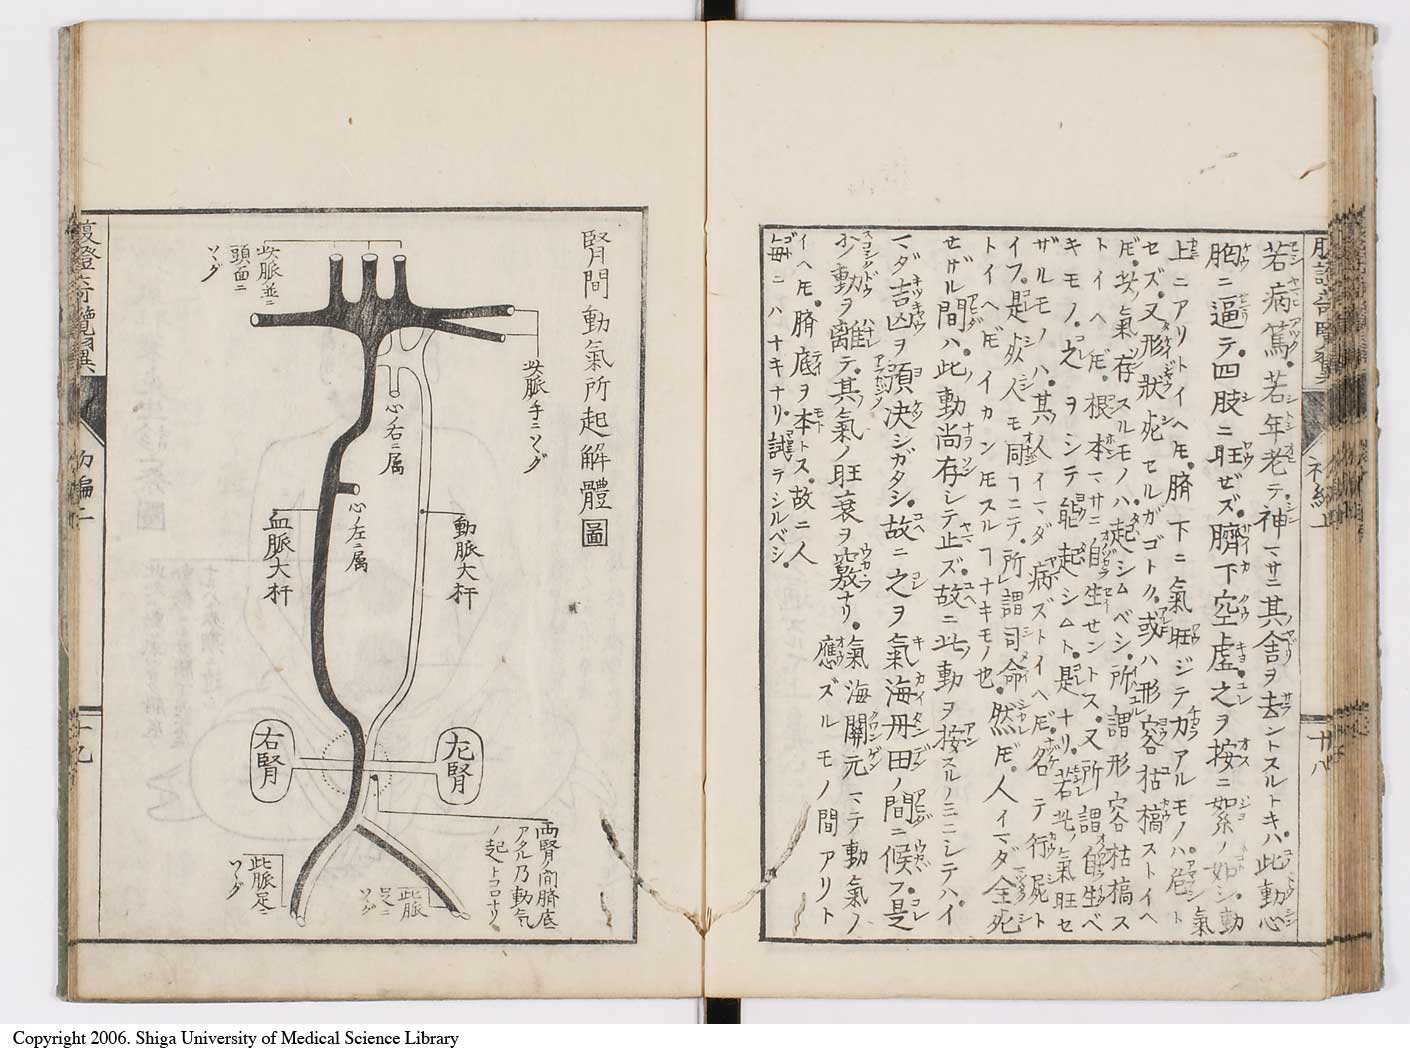 若病篤。若年老テ。神マサニ其舎ヲ去ントスルトキハ。此動心
胸ニ逼テ。四肢ニ旺ゼズ。臍下空虚。之ヲ按ニ絮ノ如シ。動氣
上ニアリトイヘ𪜈。臍下ニ氣旺ジテ力アルモノハ危
セズ。又形狀死セルガゴトク。或ハ形容枯槁ストイヘ
𪜈。此氣存スルモノハ起シムベシ。所謂形容枯槁ス
トイヘ𪜈。根本マサニ自生セントス。又所謂自生ベ
キモノ。之ヲシテ能起シムト。是ナリ。若此氣旺セ
ザルモノハ。其人イマダ病ズトイヘ𪜈。名テ行屍ト
イフ。是死人モ同ヿニテ。所謂司命。然𪜈。人イマダ全死
トイヘ𪜈イカン𪜈スルヿナキモノ也
セザル間ハ。此動尚存シテ止ズ。故ニ此動ヲ按スルノミニシテハ。イ
マダ吉凶ヲ預決シガタシ。故ニ之ヲ氣海丹田ノ間ニ候フ。是
少動ヲ離テ。其氣ノ旺衰ヲ窺ナリ。氣海關元マテ動氣ノ
應ズルモノ間アリト
イヘ𪜈。臍底ヲ本トス。故ニ人
毎ニハナキナリ。誠テシルベシ。
十八
腎間動氣所起解體圖
此脈並ニ
頭面ニ
ツヾグ
此脈手ニツヾグ
心ノ右ニ属
心ノ左ニ属
血脈大杆
動脈大杆
右腎
左腎
兩腎ノ間臍底ニ
アタル乃動氣
ノ起トコロナリ
此脈足ニ
ツヾグ
此脈
足ニ
ツヾグ
腹證奇覽翼
初編二
十九
Copyright 2006. Shiga University of Medical Science Library